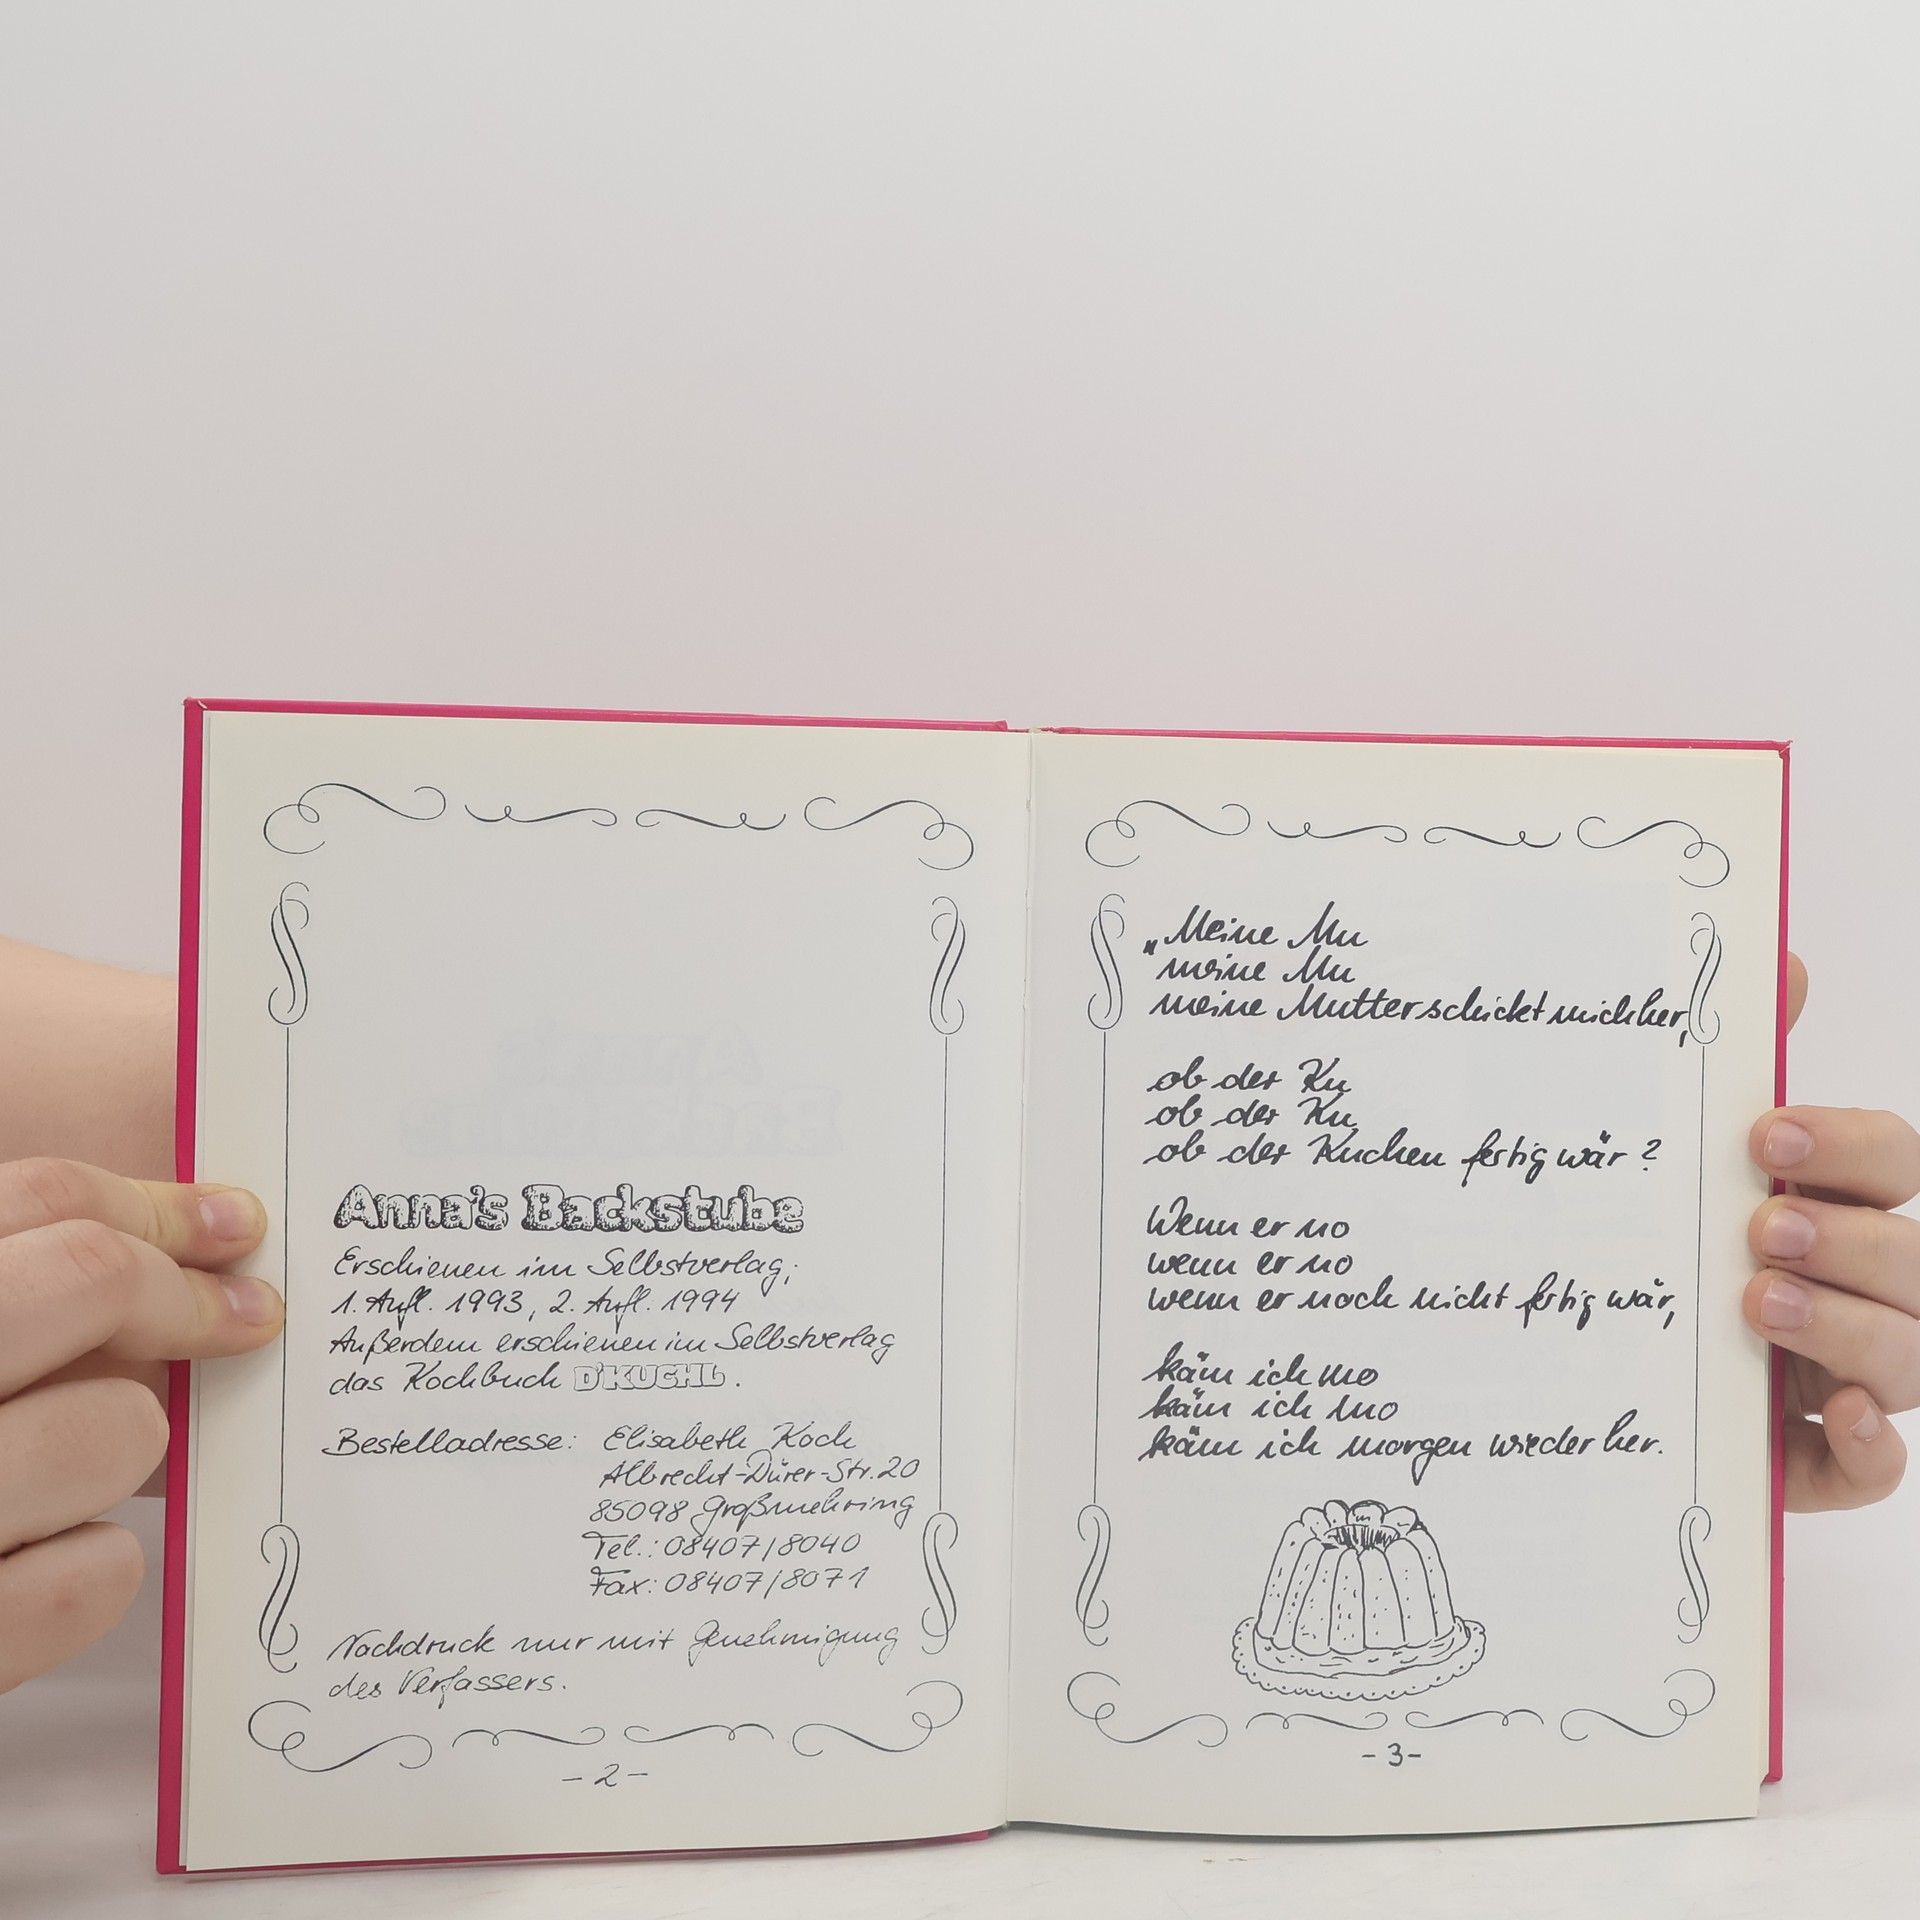 Anna's Backstube
Erschienen im Selbstverlag;
1. Aufl. 1993, 2. Aufl. 1994
Außerdem erschienen im Selbstverlag
das Kochbuch D'KUCHL.
Bestelladresse: Elisabeth Koch
Albrecht-Dürer-Str. 20
85098 Großmehring
Tel.: 08407/8040
Fax: 08407/8071
Nachdruck nur mit Genehmigung
des Verfassers.
- 2 -
„Meine Mu
meine Mu
meine Mutter schickt mich her,
ob der Ku
ob der Ku
ob der Kuchen fertig wär?
Wenn er no
wenn er no
wenn er noch nicht fertig wär,
käm ich mo
käm ich mo
käm ich morgen wieder her.
- 3 -